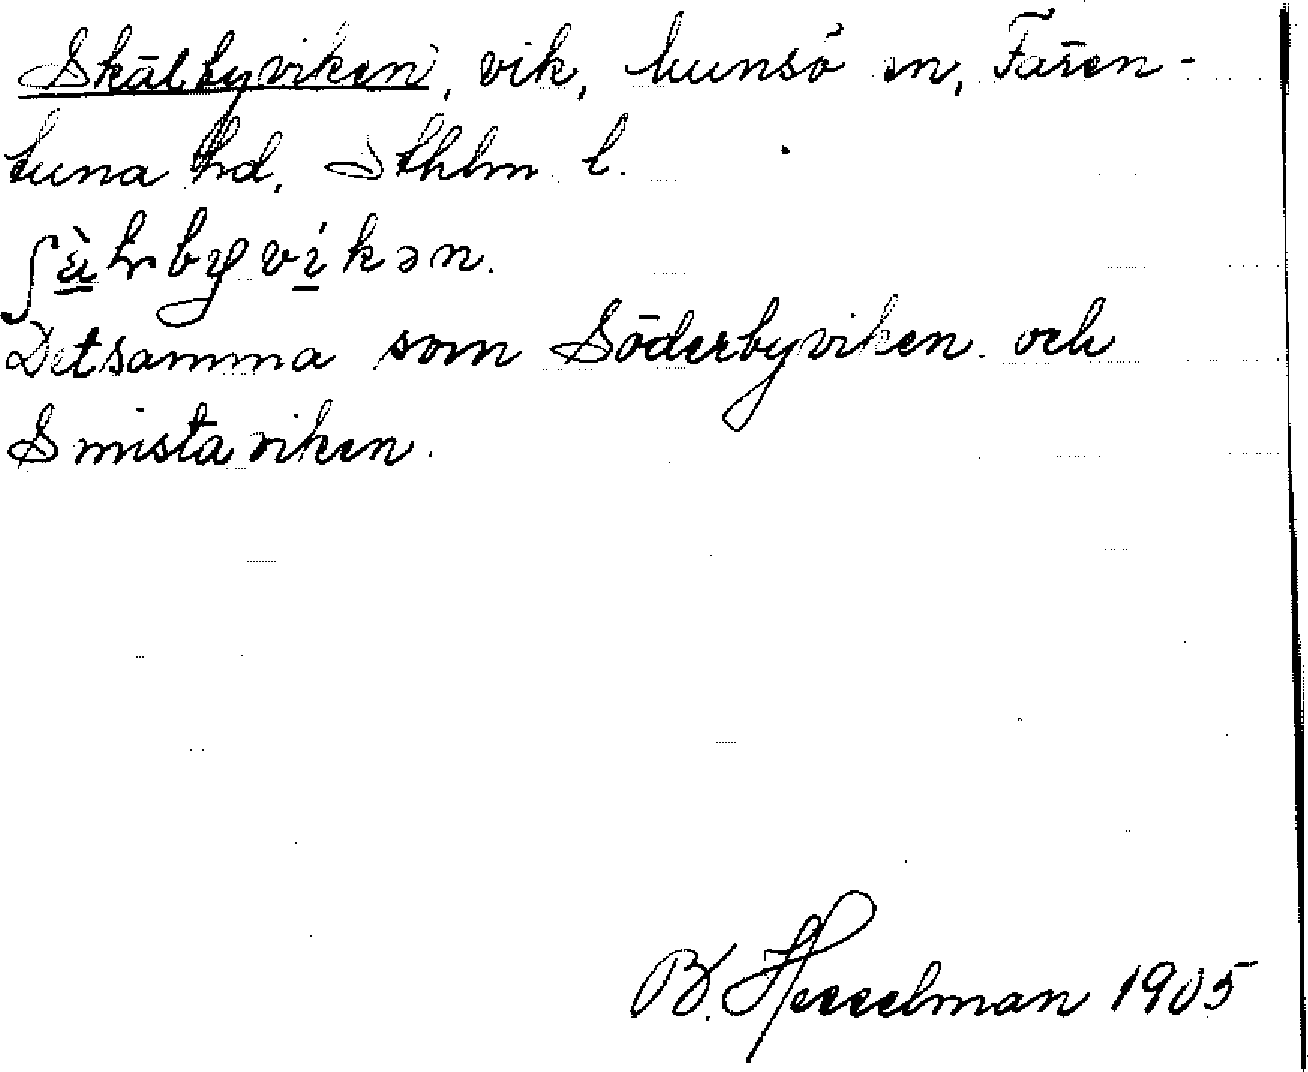 Skälbyviken, vik, Munsö sn, Fären-
tuna hd, Sthlm l.
Detsamma som Söderbyviken och
Smistaviken.
B. Hesselman 1905